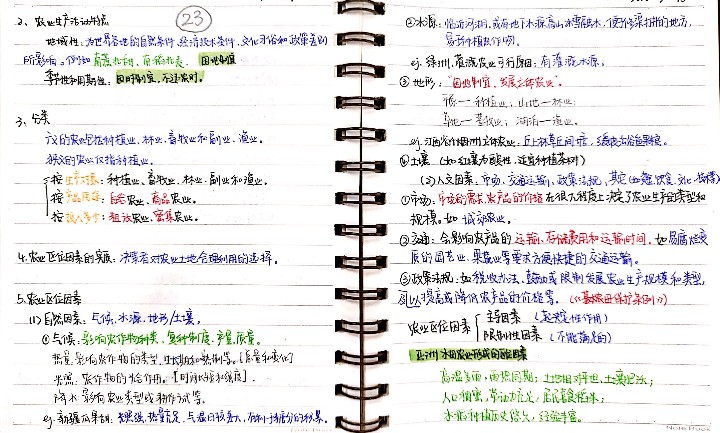 23
2、农业生产活动特点
地域性：为世界各地的自然条件、经济技术条件、文化习俗和政策差别
所影响。例如 南稻北 因地制宜
季节性和周期性：因时制宜，不违农时。
3、分类
广义的农业包括种植业、林业、畜牧业和副业、渔业。
狭义的农业仅指种植业。
按生产对象：种植业、畜牧业、林业、副业和渔业。
按产品用途：自给农业、商品农业。
按投入多少：粗放农业、密集农业。
4、农业区位因素的实质：决策者对农业土地合理利用的选择。
5、农业区位因素
(1)自然因素：气候、水源、地形、土壤。
①气候：影响农作物种类、复种制度、产量、质量。
热量：影响农作物的类型、耕制等。[质量和变化]
光照：农作物的光合作用。[时间和强度]
降水：影响农业类型或耕作方式等。
eg.新疆瓜果甜：光照强，热量充足，气温日较差大，有利于糖分的积累。
④水源：临近河湖，或有地下水源、高山冰雪融水，便于修渠打井的地方，
易于种植农作物。
eg.绿洲、灌溉农业可行原因：有灌溉水源。
③地形：“因地制宜，发展立体农业”。
平原—种植业；山地—林业；
草地—畜牧业；河湖—渔业。
eg.江西省泰和 立体农业：丘上林草丘间塘，缓坡沟谷鱼果粮。
④土壤（如红壤为酸性，适宜种植茶树）
(2)人文因素：市场、交通运输、政策法规、其它
①市场：市场的需求、农产品的价格在很大程度上决定了农业生产的类型和
规模。如城郊农业。
②交通：会影响农产品的运输、存储费用和运输时间，如易腐烂变
质的园艺业、乳畜业等要求方便快捷的交通运输。
③政策法规：如税收办法、鼓励或限制发展农业生产规模和类型，
以提高或降低农产品的价格等。（《基本农田保护条例》）
农业区位因素
主导因素（起决定性作用）
限制性因素（不能满足的）
亚洲水田农业形成的区位因素
高温多雨，雨热同期；土地相对平坦，土壤肥沃；
人口稠密，劳动力充足，居民食稻米；
水稻种植历史悠久，经验丰富。